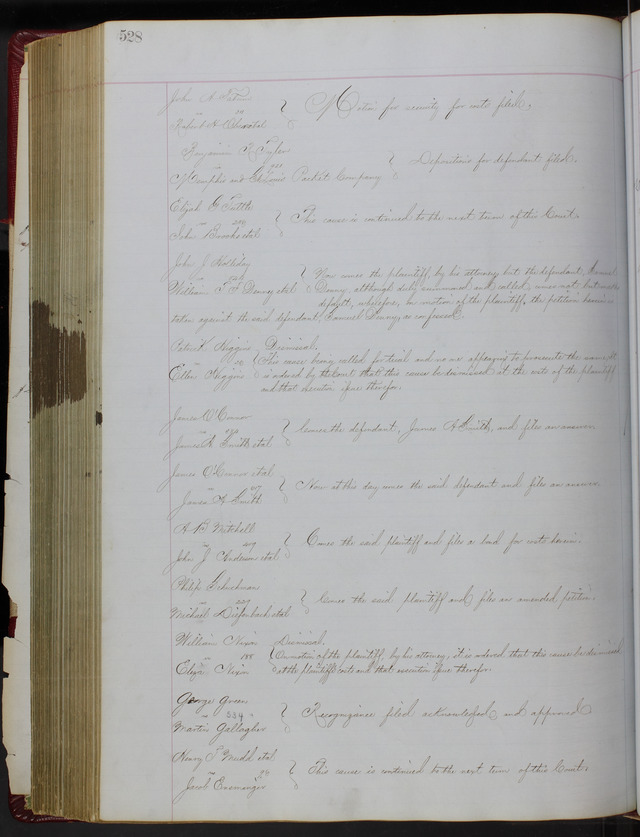 528
John A
vs
Robert A et al
Motion for security for costs filed.
Benjamin R Taylor
vs
Memphis and St Louis Packet Company
Depositions for defendant filed.
Elijah G Tuttle
vs
John Brooks et al
This cause is continued to the next term of this Court.
John J Holliday
vs
William T F Denny et al
Now comes the plaintiff, by his attorney but the defendant,
Denny although duly summoned and called, comes not but makes
default, wherefore, on motion of the plaintiff, the petition herein is
taken against the said defendant Samuel Denny, as confessed.
Patrick Higgins
vs
Ellen Higgins
Dismissal.
This cause being called for trial and no one appearing to prosecute the same, it
is ordered by the Court that this cause be dismissed at the costs of the plaintiff
and that execution issue therefor.
James O'Connor
vs
James A Smith et al
Comes the defendant, James A Smith, and files an answer.
James O'Connor et al
vs
James A Smith
Now at this day comes the said defendant and files an answer.
A B Mitchell
vs
John J Anderson et al
Comes the said plaintiff and files a bond for costs herein.
Philip
vs
Michael Diefenbach et al
Comes the said plaintiff and files an amended petition.
William Nixon
vs 188
Eliza Nixon
Dismissal
On motion of the plaintiff, by his attorney, it is ordered that this cause be dismissed
at the plaintiff costs and that execution issue therefor.
George Green
vs 534
Martin Gallagher
Recognizance filed acknowledged and approved
Henry S Mudd et al
vs
Jacob
This cause is continued to the next term of this Court.